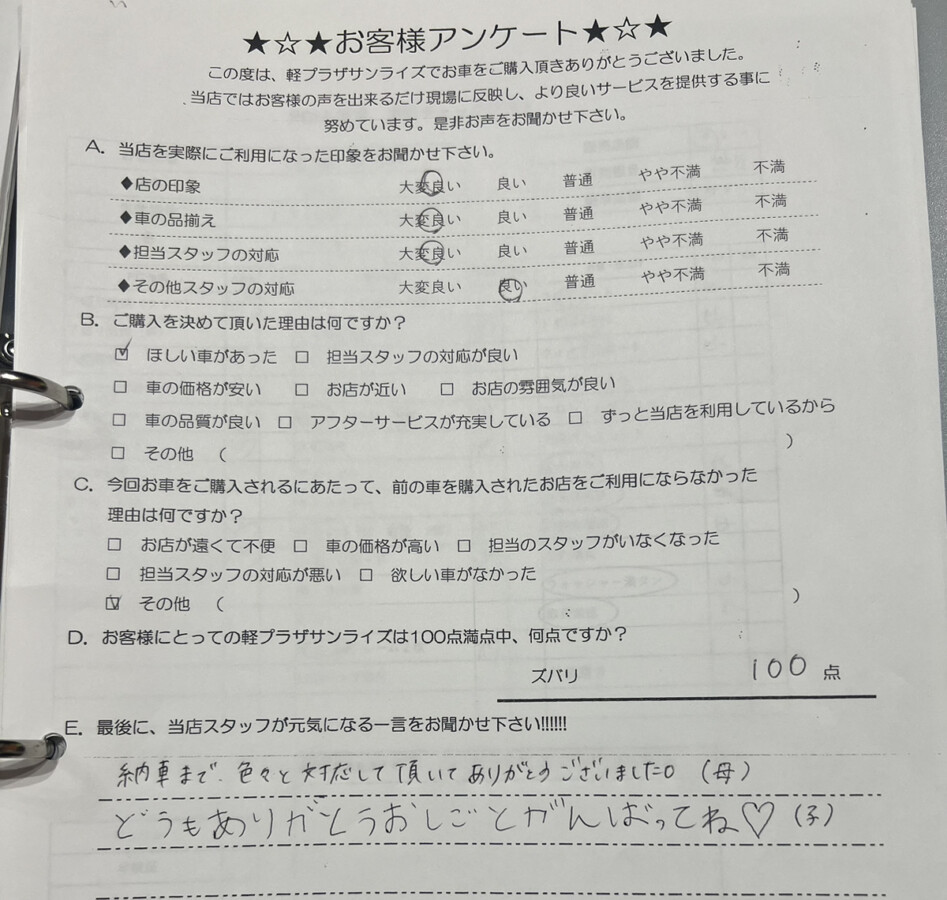 ★☆★お客様アンケート★☆★
この度は、軽プラザサンライズでお車をご購入頂きありがとうございました。
当店ではお客様の声を出来るだけ現場に反映し、より良いサービスを提供する事に
努めています。是非お声をお聞かせ下さい。
A. 当店を実際にご利用になった印象をお聞かせ下さい。
◆店の印象 大変良い 良い 普通 やや不満 不満
◆車の品揃え 大変良い 良い 普通 やや不満 不満
◆担当スタッフの対応 大変良い 良い 普通 やや不満 不満
◆その他スタッフの対応 大変良い 良い 普通 やや不満 不満
B. ご購入を決めて頂いた理由は何ですか？
☑ ほしい車があった □ 担当スタッフの対応が良い
□ 車の価格が安い □ お店が近い □ お店の雰囲気が良い
□ 車の品質が良い □ アフターサービスが充実している □ ずっと当店を利用しているから
□ その他 （ ）
C. 今回お車をご購入されるにあたって、前の車を購入されたお店をご利用にならなかった
理由は何ですか？
□ お店が遠くて不便 □ 車の価格が高い □ 担当のスタッフがいなくなった
□ 担当スタッフの対応が悪い □ 欲しい車がなかった
☑ その他 （ ）
D. お客様にとっての軽プラザサンライズは100点満点中、何点ですか？
ズバリ 100 点
E. 最後に、当店スタッフが元気になる一言をお聞かせ下さい!!!!!!
納車まで、色々と対応して頂いてありがとうございました。（母）
どうもありがとうおしごとがんばってね♡（子）